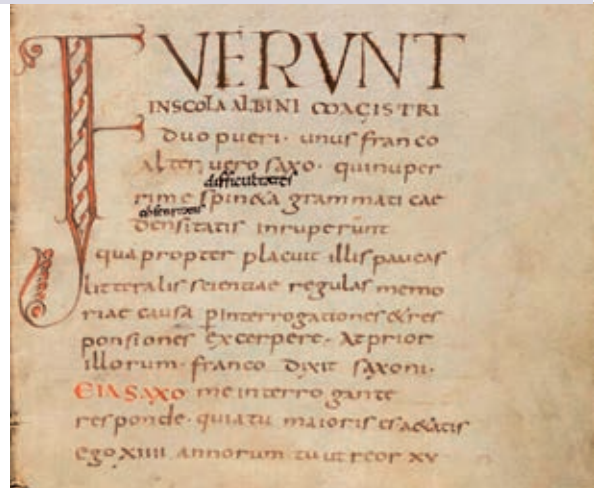 FVERVNT
INSCOLA ALBINI MAGISTRI
duo pueri · unus franco
alter uero saxo · qui nuper
difficultates
rime spineta grammaticae
densitatis inruperunt
quapropter placuit illis paucas
litteralis scientiae regulas memo
riae causa p interrogationes & res
ponsiones excerpere · At prior
illorum · franco dixit saxoni ·
EIA SAXO me interrogante
responde · quia tu maioris es aetatis
ego XIIII annorum tu ut reor XV